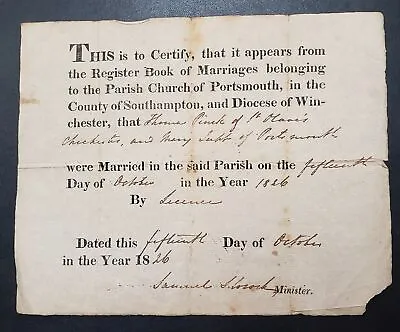 THIS is to Certify, that it appears from
the Register Book of Marriages belonging
to the Parish Church of Portsmouth, in the
County of Southampton, and Diocese of Win-
chester, that Thomas of St Olave's
Chichester, and Mary of Portsmouth
were Married in the said Parish on the fifteenth
Day of October in the Year 1826
By Licence
Dated this fifteenth Day of October
in the Year 1826
Samuel Minister.